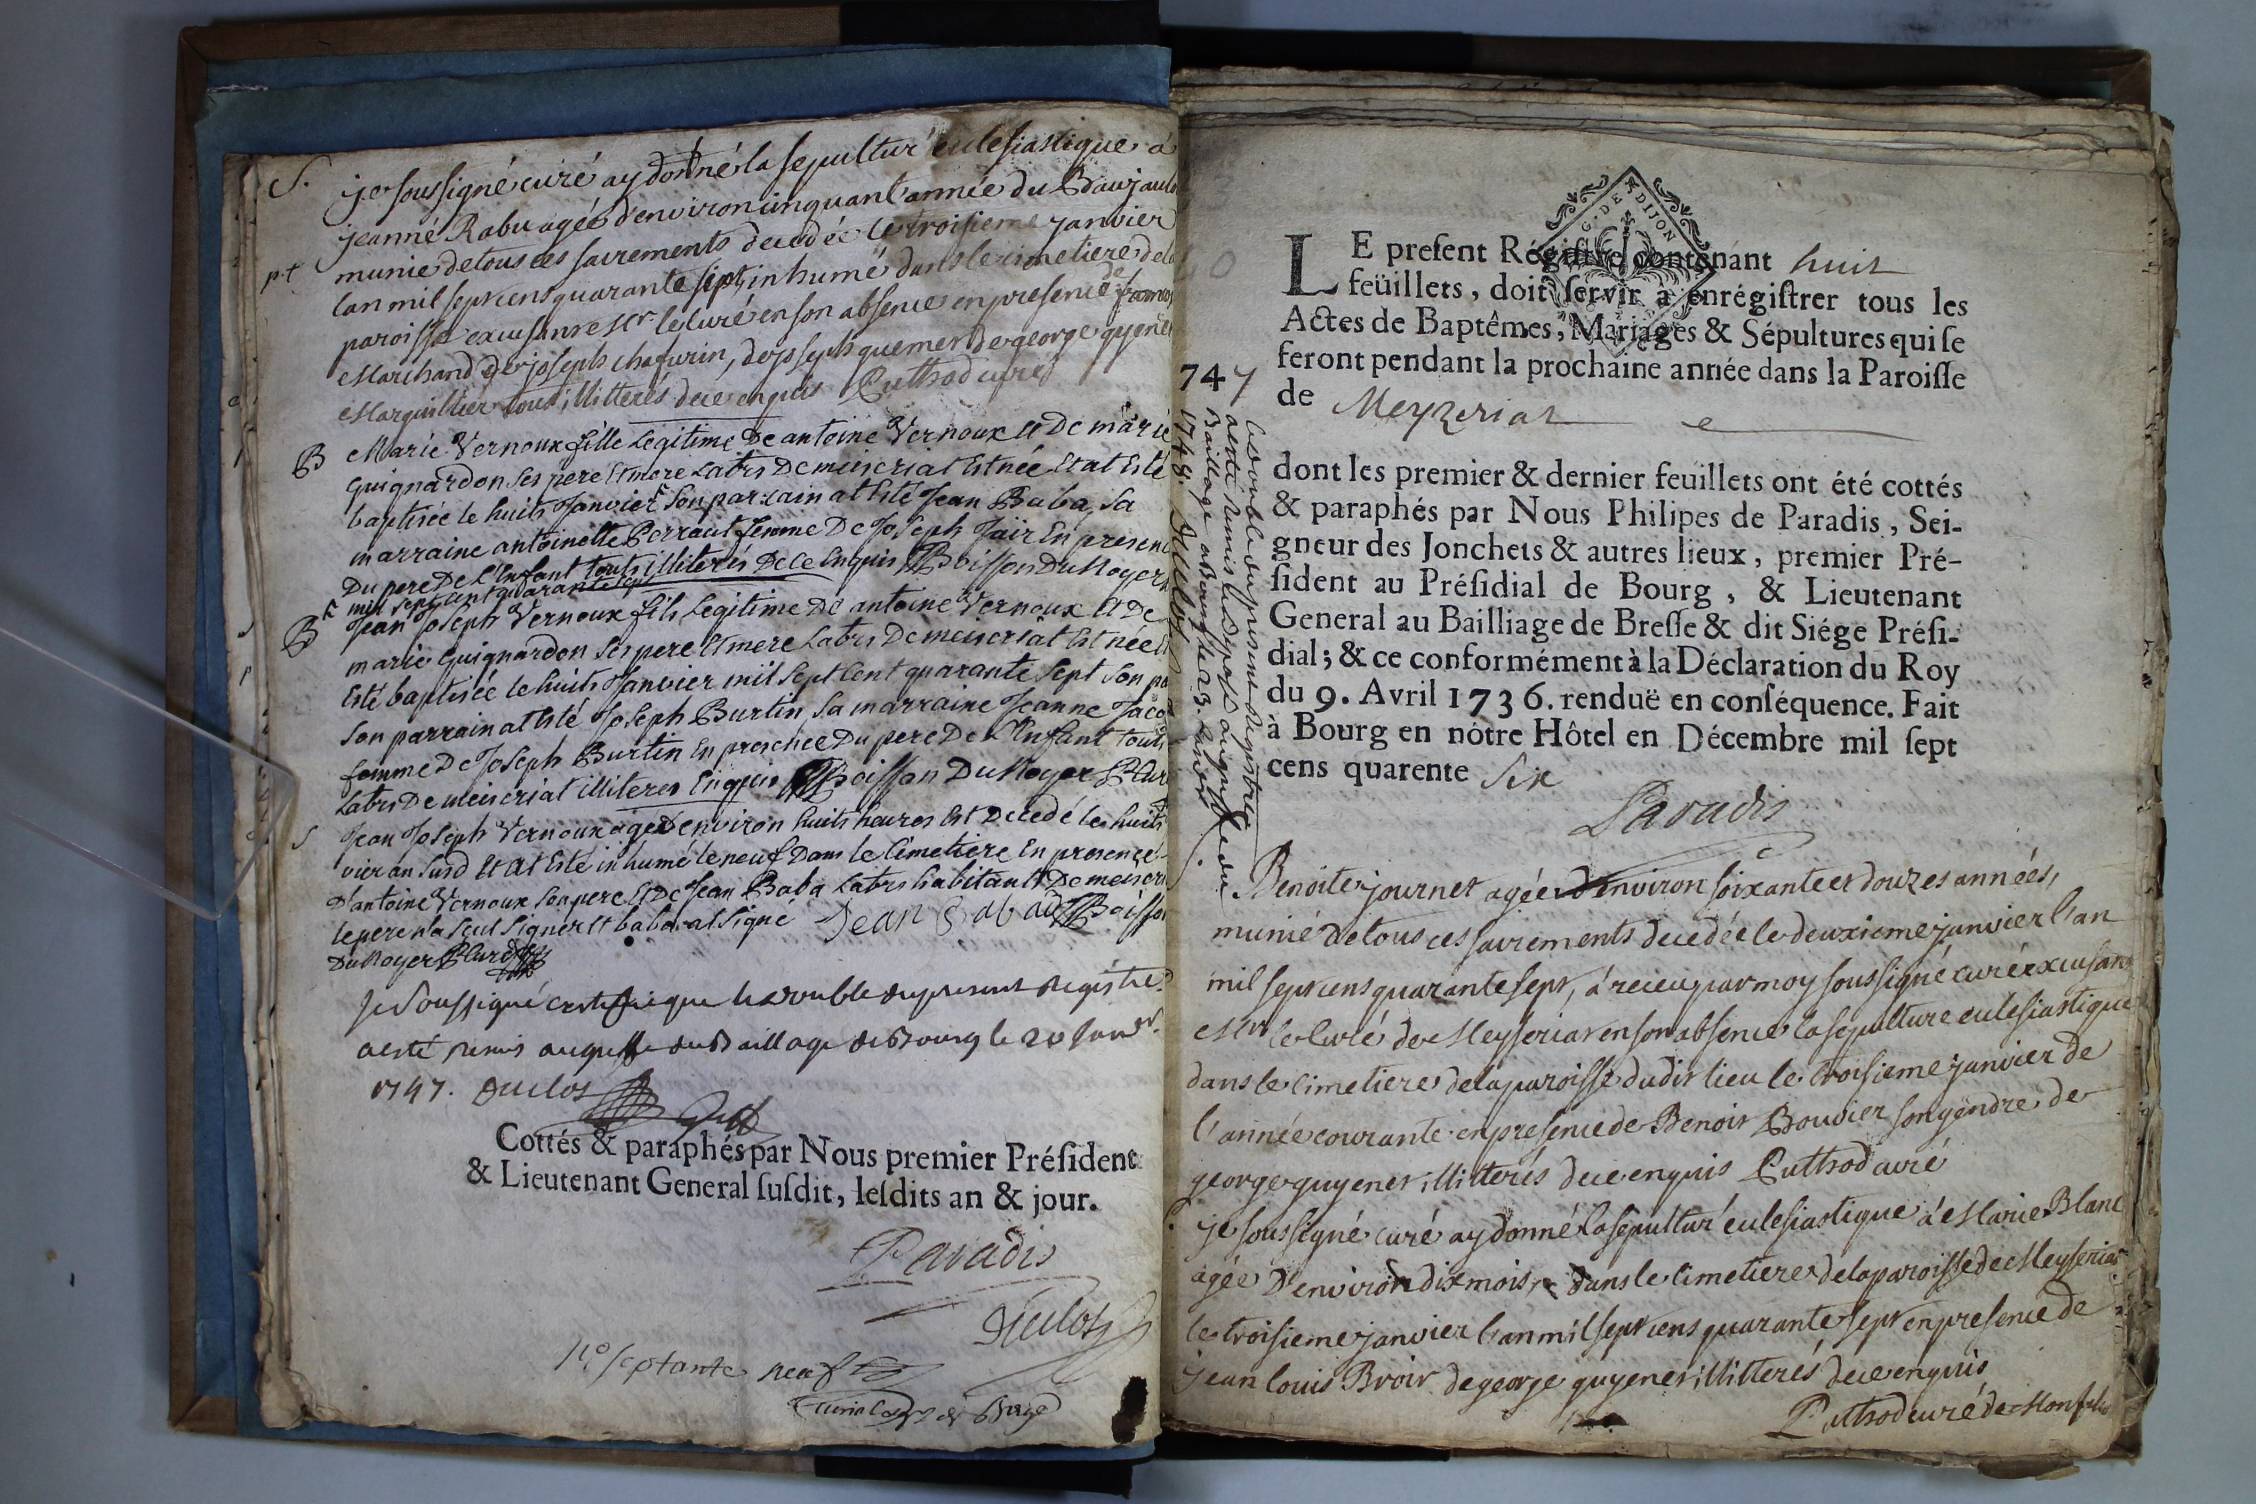 S. je soussigné curé ay donné la sepultur'eulesiastique á
jeanné Rabu agée d'environ cinquant'année du
munie de tous ces sacrements decedée le troisieme janvier
lan mil sept cens quarante sept, inhumé dans le cimetiere dela
paroisse excusant Mr. le curé en son absence en presence de
Marchand de joseph chaqurin, de joseph quemer de george guyenet
Marguillier tous illitterés dece enquis Puthod curé
B Marie Vernoux fille Legitime De antoine Vernoux et De marie
Guignardon Ses pere et mere Labrs De meiseriat Est née Et at Esté
baptisée le huits Janvier Son parrain at Esté Jean Baba, Sa
marraine antoinette Perraut femme De Joseph En presence
Du pere De L'Enfant touts illiterés De Ce Enquis Boisson Du Noyer
mil sept cent quarante
B Jean Joseph Vernoux fils Legitime De antoine Vernoux et De
marie Guignardon Ses pere et mere Labrs De meiseriat Est née
Esté baptisée le huits Janvier mil Sept Cent quarante Sept Son
Son parrain at Esté Joseph Burtin, Sa marraine Jeanne
femme De Joseph Burtin En presence Du pere De L'Enfant touts
Labrs De meiseriat illiteres Enquis Boisson Du Noyer
S Jean Joseph Vernoux agé d'environ huits heures Est Decedé le huits
vier an Susd Et at Esté inhumé le neuf Dans le Cimetiere En presence
D'antoine Vernoux Son pere Et De Jean Baba Labrs habitants De
le pere n'a Sceut Signer et baba at Signé Jean Baba Boisson
Du Noyer
Je Soussigné certifie que le double du present Registre
a esté remis au greffe du Baillage de Bourg le 20
1747. Duclos
Cottés & paraphés par Nous premier Président
& Lieutenant General susdit, lesdits an & jour.
Paradis
Duclos
septante neuf
LE present Régistre contenant huit
feüillets, doit servir a enrégistrer tous les
Actes de Baptêmes, Mariages & Sépultures qui se
feront pendant la prochaine année dans la Paroisse
de Meyzeriat
dont les premier & dernier feuillets ont été cottés
& paraphés par Nous Philipes de Paradis, Sei-
gneur des Jonchets & autres lieux, premier Pré-
sident au Présidial de Bourg, & Lieutenant
General au Bailliage de Bresse & dit Siége Prési-
dial; & ce conformément à la Déclaration du Roy
du 9. Avril 1736. renduë en conséquence. Fait
à Bourg en nôtre Hôtel en Décembre mil sept
cens quarente six
Paradis
747
Le double du present Registre
a esté remis au greffe du
Baillage
1748. Duclos
G. DE DIJON
Benoite journet agée d'environ soixante et douzes années,
munié de tous ces sacrements decedée le deuxieme janvier l'an
mil sept cens quarante sept, á receu par moy soussigné curé excusant
Mr le Curé de Meysseriat en son absence la sepulture eulesiastique
dans le cimetiere de la paroisse dudit lieu le troisieme janvier de
l'année courante en presence de Benoit Bouvier son gendre de
george guyenet illitterés dece enquis Puthod curé
S. je soussigné curé ay donné la sepultur'eulesiastique á Marie Blanc
agée D'environ dix mois, dans le cimetiere de la paroisse de Meysseriat
le troisieme janvier l'an mil sept cens quarante sept en presence de
jean louis Broir de george guyenet illitterés dece enquis
Puthod curé de